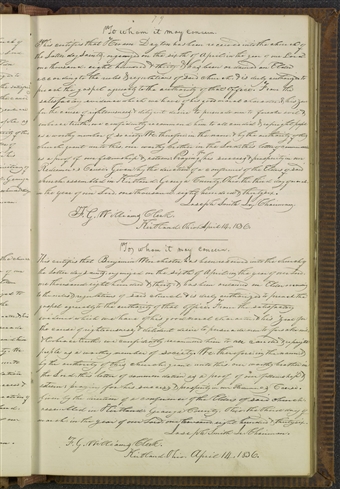 79
To whom it may concern
This certifies that Hiram Dayton has been received into the church of
the Latter day Saints, organized on the sixth of April, in the year of our Lord
one thousand eight hundred & thirty, & has been ordained an Elder
according to the rules & regulations of said church & is duly authorized to
preach the gospel agreeably to the authority of that office. From the
satisfactory evidence which we have of his good moral character, & his zeal
in the cause of righteousness, & diligent desire to persuade men to forsake evil &
embrace truth, we confidently recommend him to all candid & upright people
as a worthy member of society. We therefore in the name & by the authority of this
church grant unto this our worthy brother in the Lord this letter of commendation
as a proof of our fellowship & esteem: Praying for his success & prosperity in our
Redeemer's Cause. Given by the direction of a conference of the Elders of said
church assembled in Kirtland Geauga County Ohio the third day of
in the year of our Lord one thousand eight hundred & thirty six.
Joseph Smith Jr Chairman
F. G. Williams Clerk.
Kirtland Ohio April 14, 1836.
To whom it may concern
This certifies that Benjamin Winchester has been received into the church of
the latter day saints, organized on the sixth of April in the year of our Lord
one thousand eight hundred & thirty & has been ordained an Elder according
to the rules & regulations of said church & is duly authorized to preach the
gospel agreeably to the authority of that office. From the satisfactory
evidence which we have of his good moral character and his zeal for
the cause of righteousness & diligent desire to persuade men to forsake evil
& embrace truth we confidently recommend him to all candid & upright
people as a worthy member of society. We therefore in the name &
by the authority of this church grant unto this our worthy brother in
the Lord this letter of commendation as a proof of our fellowship &
esteem: praying for his success & prosperity in our Redeemer's Cause.
Given by the direction of a conference of the Elders of said church
assembled in Kirtland Geauga County, Ohio the third day of
in the year of our Lord one thousand eight hundred & thirty six.
Joseph Smith Jr Chairman
F. G. Williams Clerk.
Kirtland Ohio. April 14, 1836.